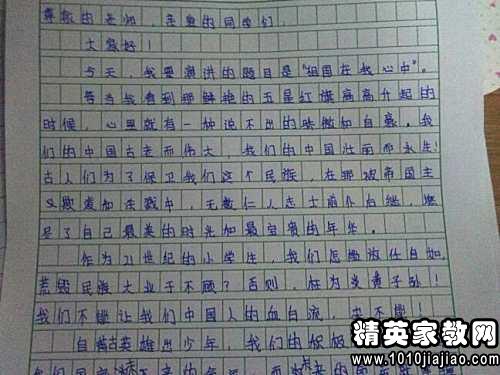 尊敬的老师,亲爱的同学们,
大家好!
今天,我要演讲的题目是"祖国在我心中"。
每当我看到那鲜艳的五星红旗高高升起的
时候,心里就有一种说不出的 和自豪。我
们的中国古老而伟大,我们的中国壮丽而永生!
古人们为了保卫我们这个民族,在那被帝国主
义 中,无数仁人志士前仆后继,
了自己最美的时光和最宝贵的年华。
作为21世纪的小学生,我们怎能
荒 民族大业于不顾?否则,枉为炎黄子孙!
我们不能让我们中国人的血白流,决不能!
自古英雄出少年,我们的
精英家教网
www.1010jiajiao.com